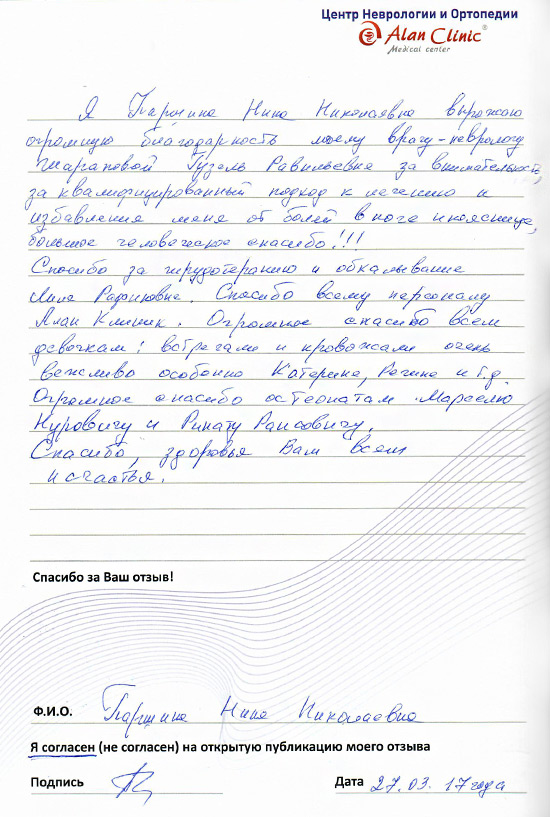 Центр Неврологии и Ортопедии
Alan Clinic®
Medical center
Я Паршина Нина Николаевна выражаю
огромную благодарность моему врачу-неврологу
Шараповой Гузель Равильевне за внимательность,
за квалифицированный подход к лечению и
избавления меня от болей в ноге и пояснице,
большое человеческое спасибо!!!
Спасибо за гирудотерапию и обкалывание
Лиле Рафиковне. Спасибо всему персоналу
Алан Клиник. Огромное спасибо всем
девочкам! встречами и провожами очень
вежливо особенно Катерине, Регине и т.д.
Огромное спасибо остеопатам Марселю
Нуровичу и Ринату Раисовичу.
Спасибо, здоровья Вам всем
и счастья.
Спасибо за Ваш отзыв!
Ф.И.О. Паршина Нина Николаевна
Я согласен (не согласен) на открытую публикацию моего отзыва
Подпись Дата 27.03.17 года